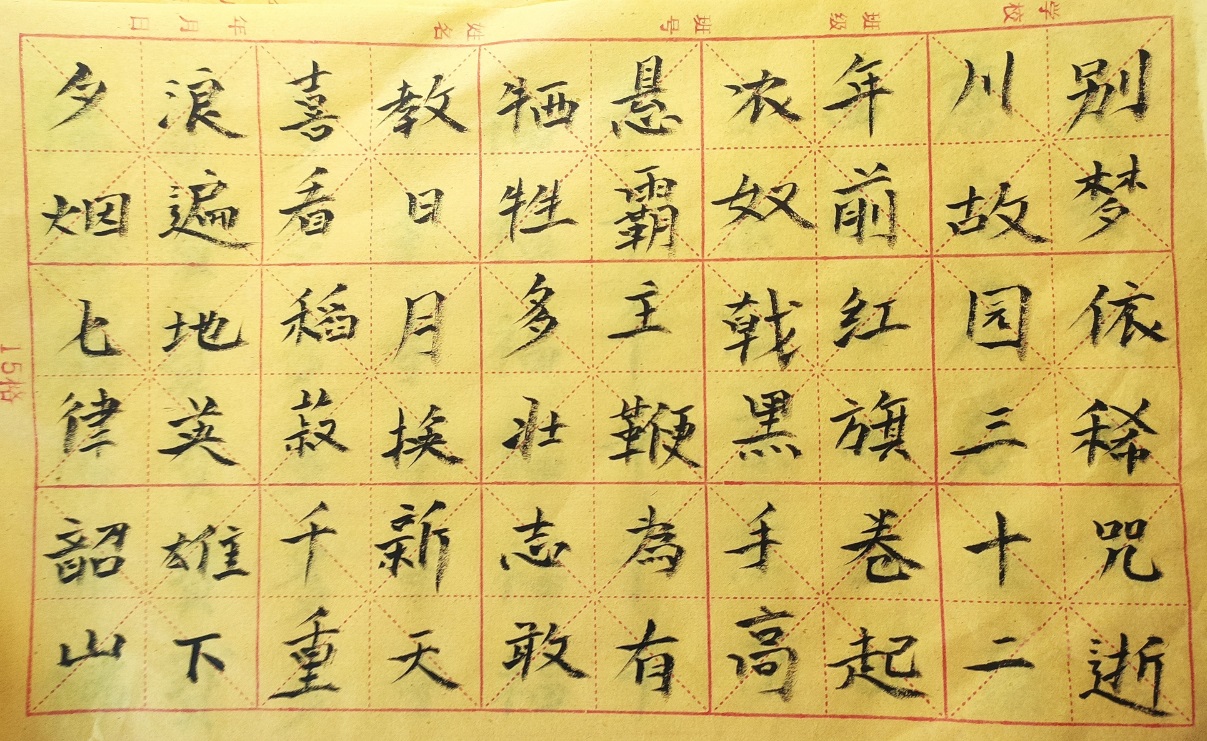 学校 班级 班号 姓名 年月日
别梦依稀咒逝
川故园三十二
年前红旗卷起
农奴戟黑手高
悬霸主鞭為有
牺牲多壮志敢
教日月换新天
喜看稻菽千重
浪遍地英雄下
夕烟七律韶山
15格